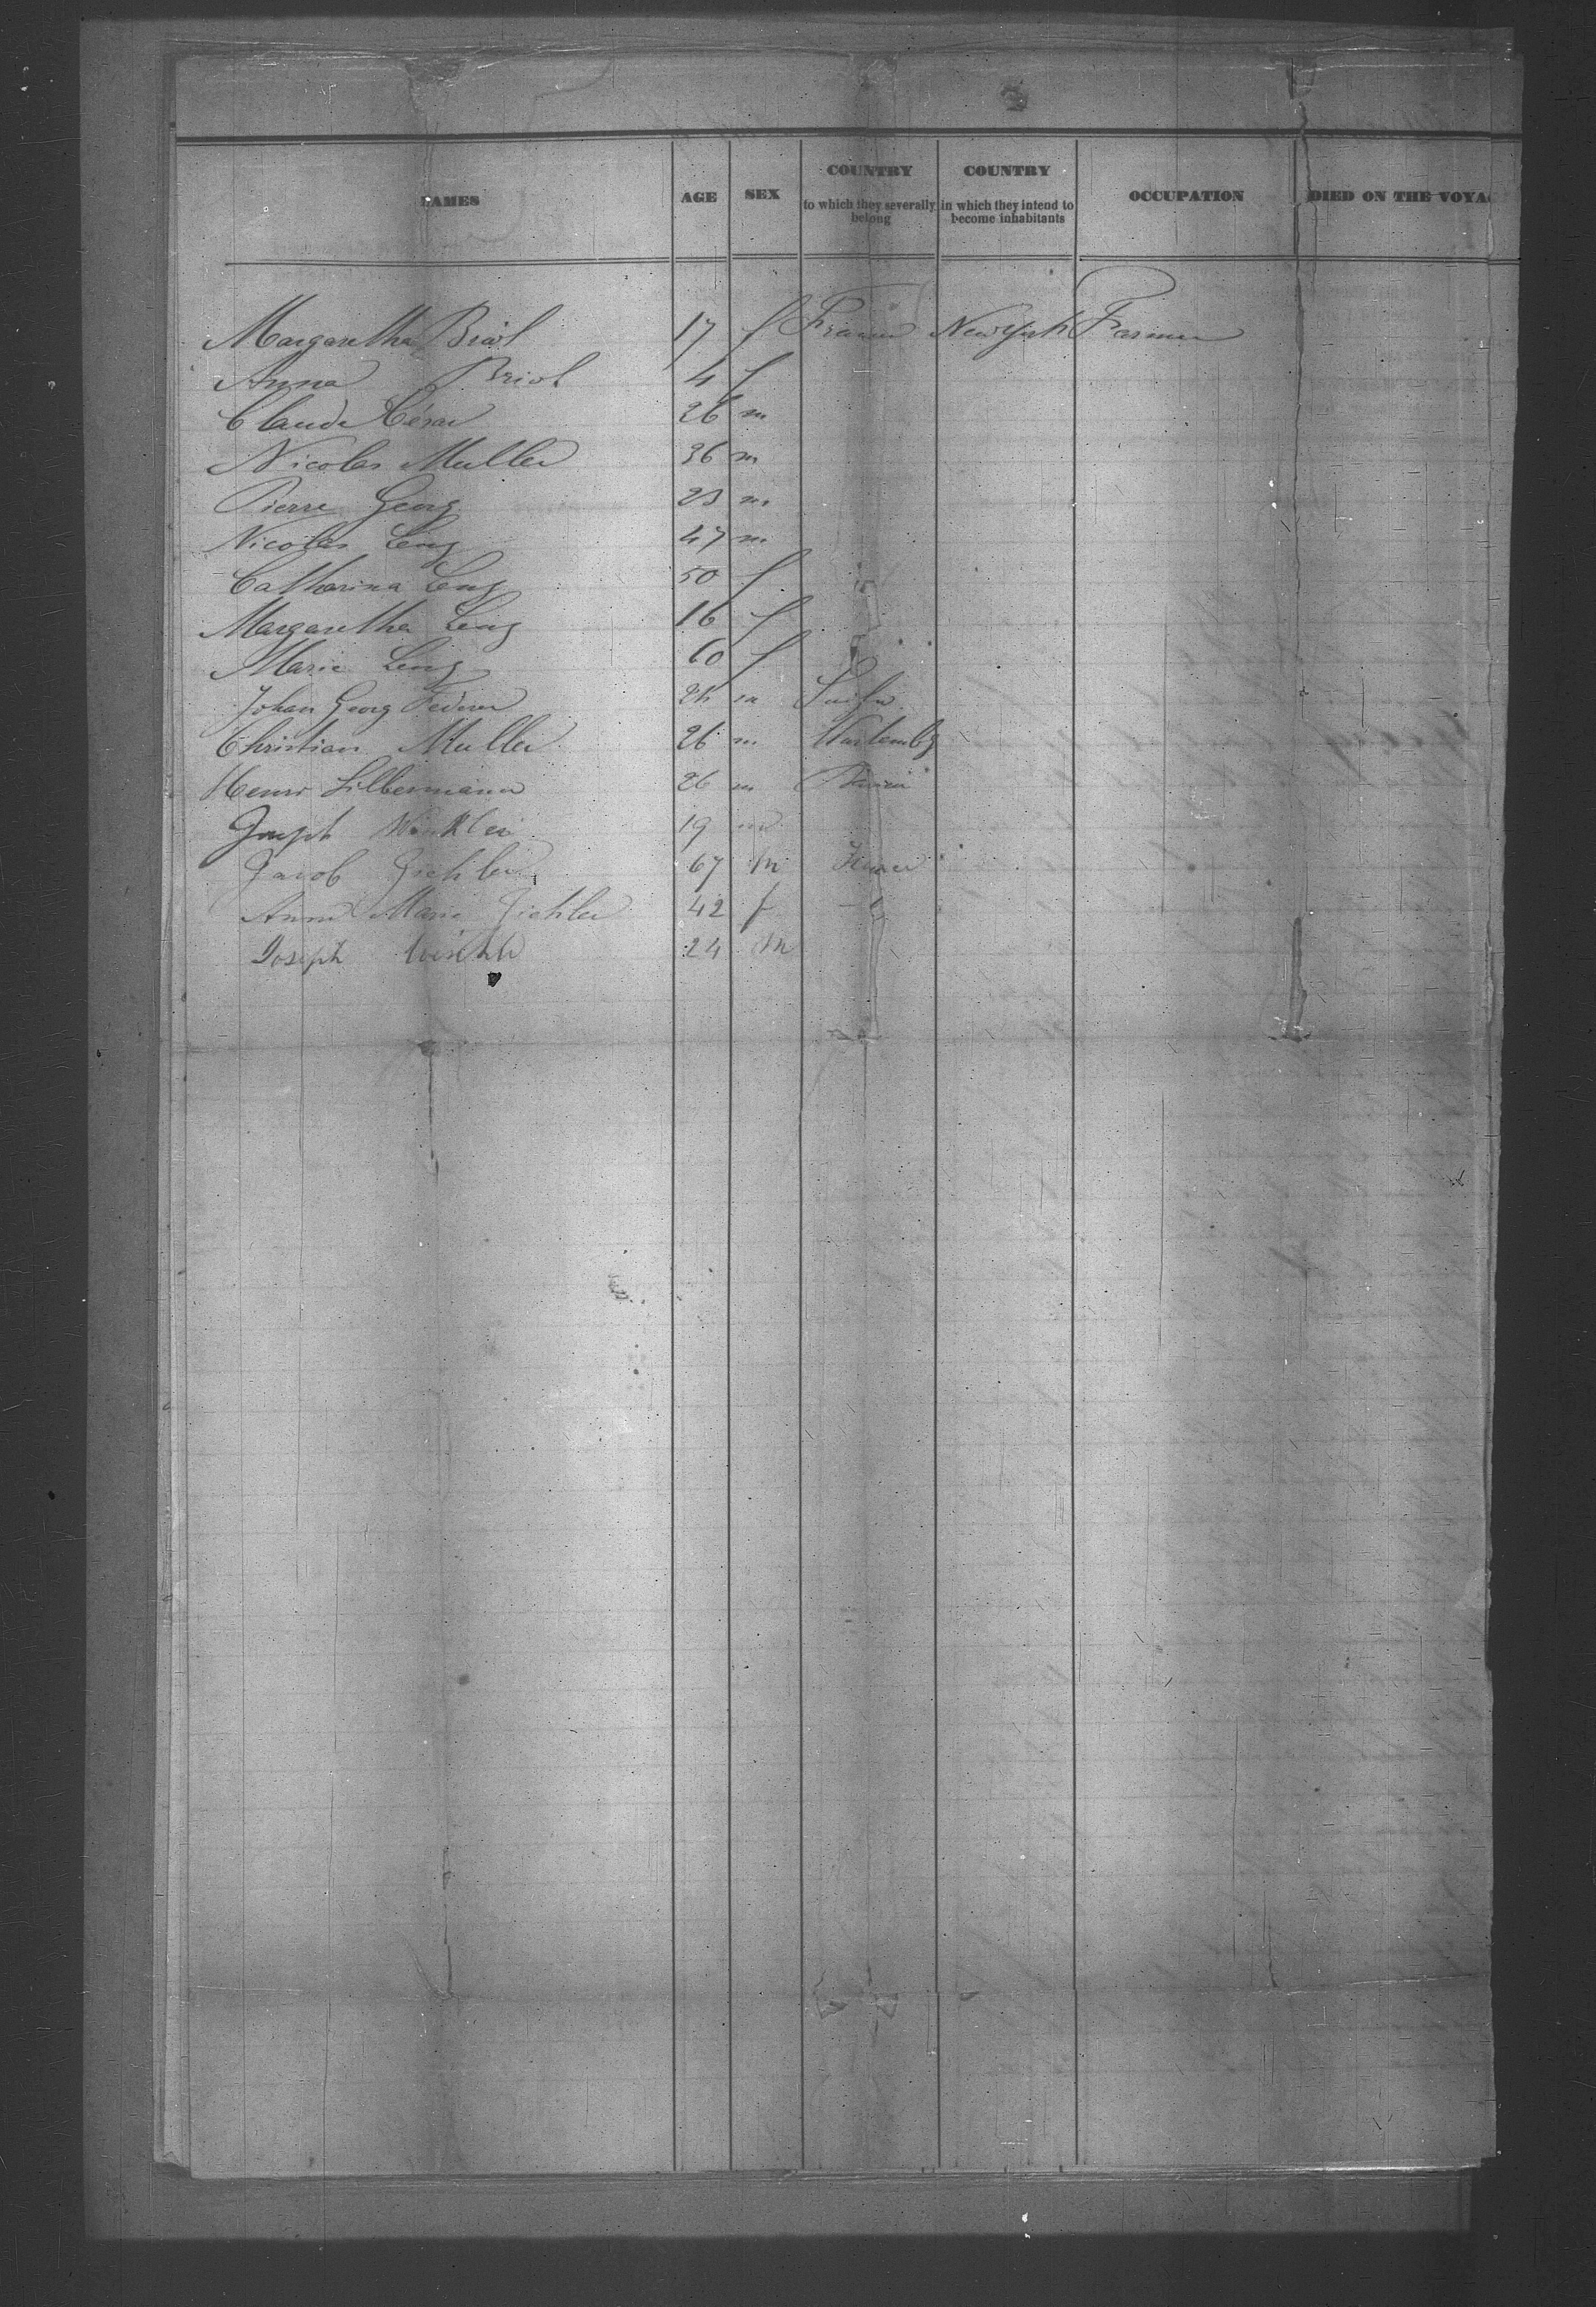 NAMES AGE SEX COUNTRY to which they severally belong COUNTRY in which they intend to become inhabitants OCCUPATION DIED ON THE VOYA
Margaretha Briol 17 f France New York Farmer
Anna Briol 4 f
Claude César 26 m
Nicolas Muller 36 m
Pierre Georg 23 m
Nicolas Leng 47 m
Catharina Leng 50 f
Margaretha Leng 16 f
Marie Leng f
Johan Georg Federer 24 m
Christian Muller 26 m Wurtembg
Henri Silbermann 26 m
Joseph Winkler 19 m
Jacob 67 m
Anna Marie 42 f
Joseph 24 m